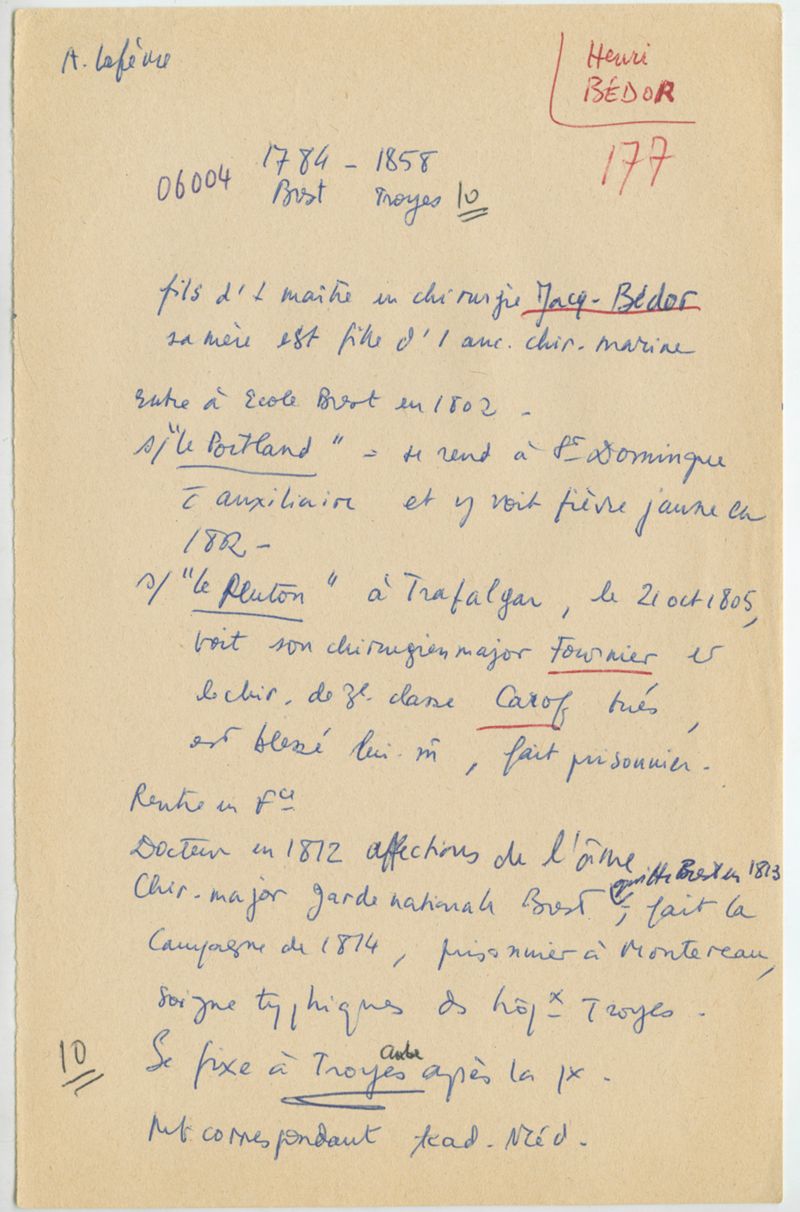 A. Lefèvre
Henri
BÉDOR
177
1784 - 1858
06004 Brest Troyes 10
fils d'1 maître en chirurgie Jacq-Bédor
sa mère est fille d'1 anc. chir. marine
Entre à Ecole Brest en 1802 -
s/ "le Portland" - se rend à St Domingue
c̄ auxiliaire et y voit fièvre jaune en
1802 -
s/ "le Pluton" à Trafalgar, le 21 oct 1805,
voit son chirurgien major Fournier et
le chir. de 3e classe Carof tués,
est blessé lui-m̄, fait prisonnier.
Rentre en Fce
Docteur en 1812 affections de l'âme
quitte Brest en 1813
Chir-major garde nationale Brest -, fait la
Campagne de 1814, prisonnier à Montereau,
soigne typhiques ds hôpx Troyes.
Aube
10 Se fixe à Troyes après la px.
Mb correspondant Acad. Méd.